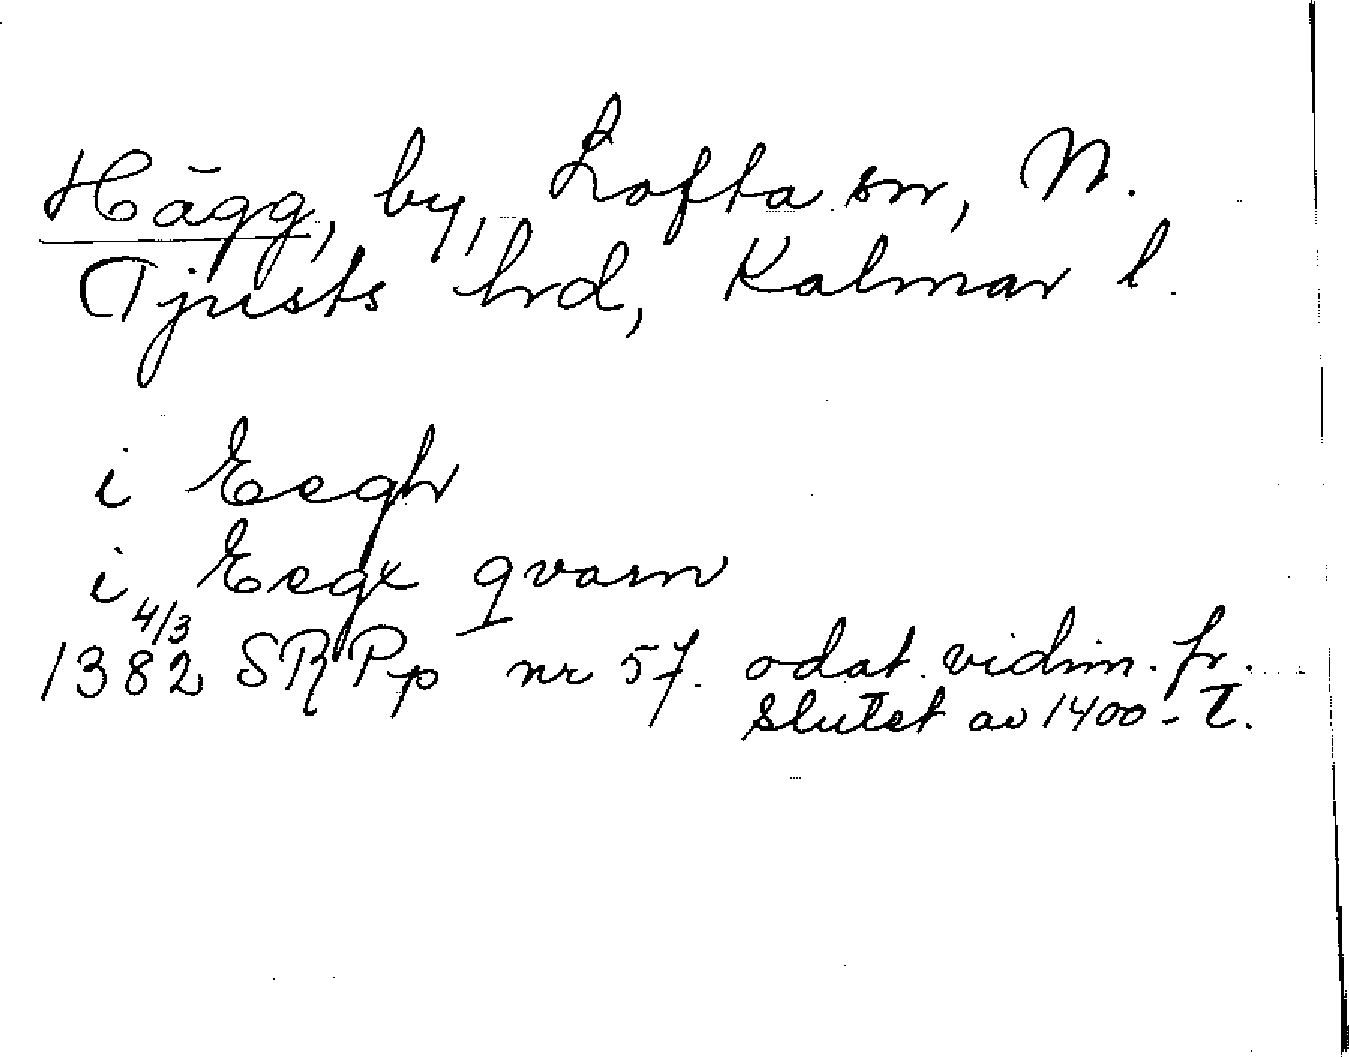 Hägg, by, Lofta sn, N.
Tjusts hrd, Kalmar l.
i Eegh
i Eegx qvarn
4/3
1382 SRPp nr 57. odat. vidim. fr.
slutet av 1400-t.